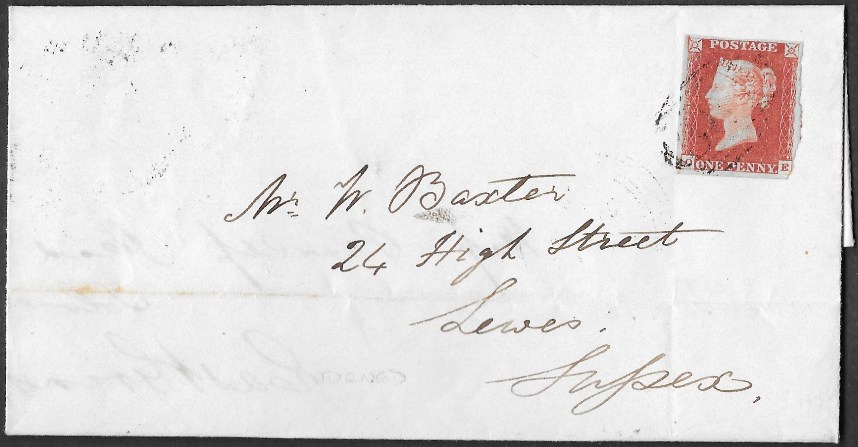 POSTAGE
ONE PENNY E
Mr. W. Baxter
24 High Street
Lewes.
Sussex,